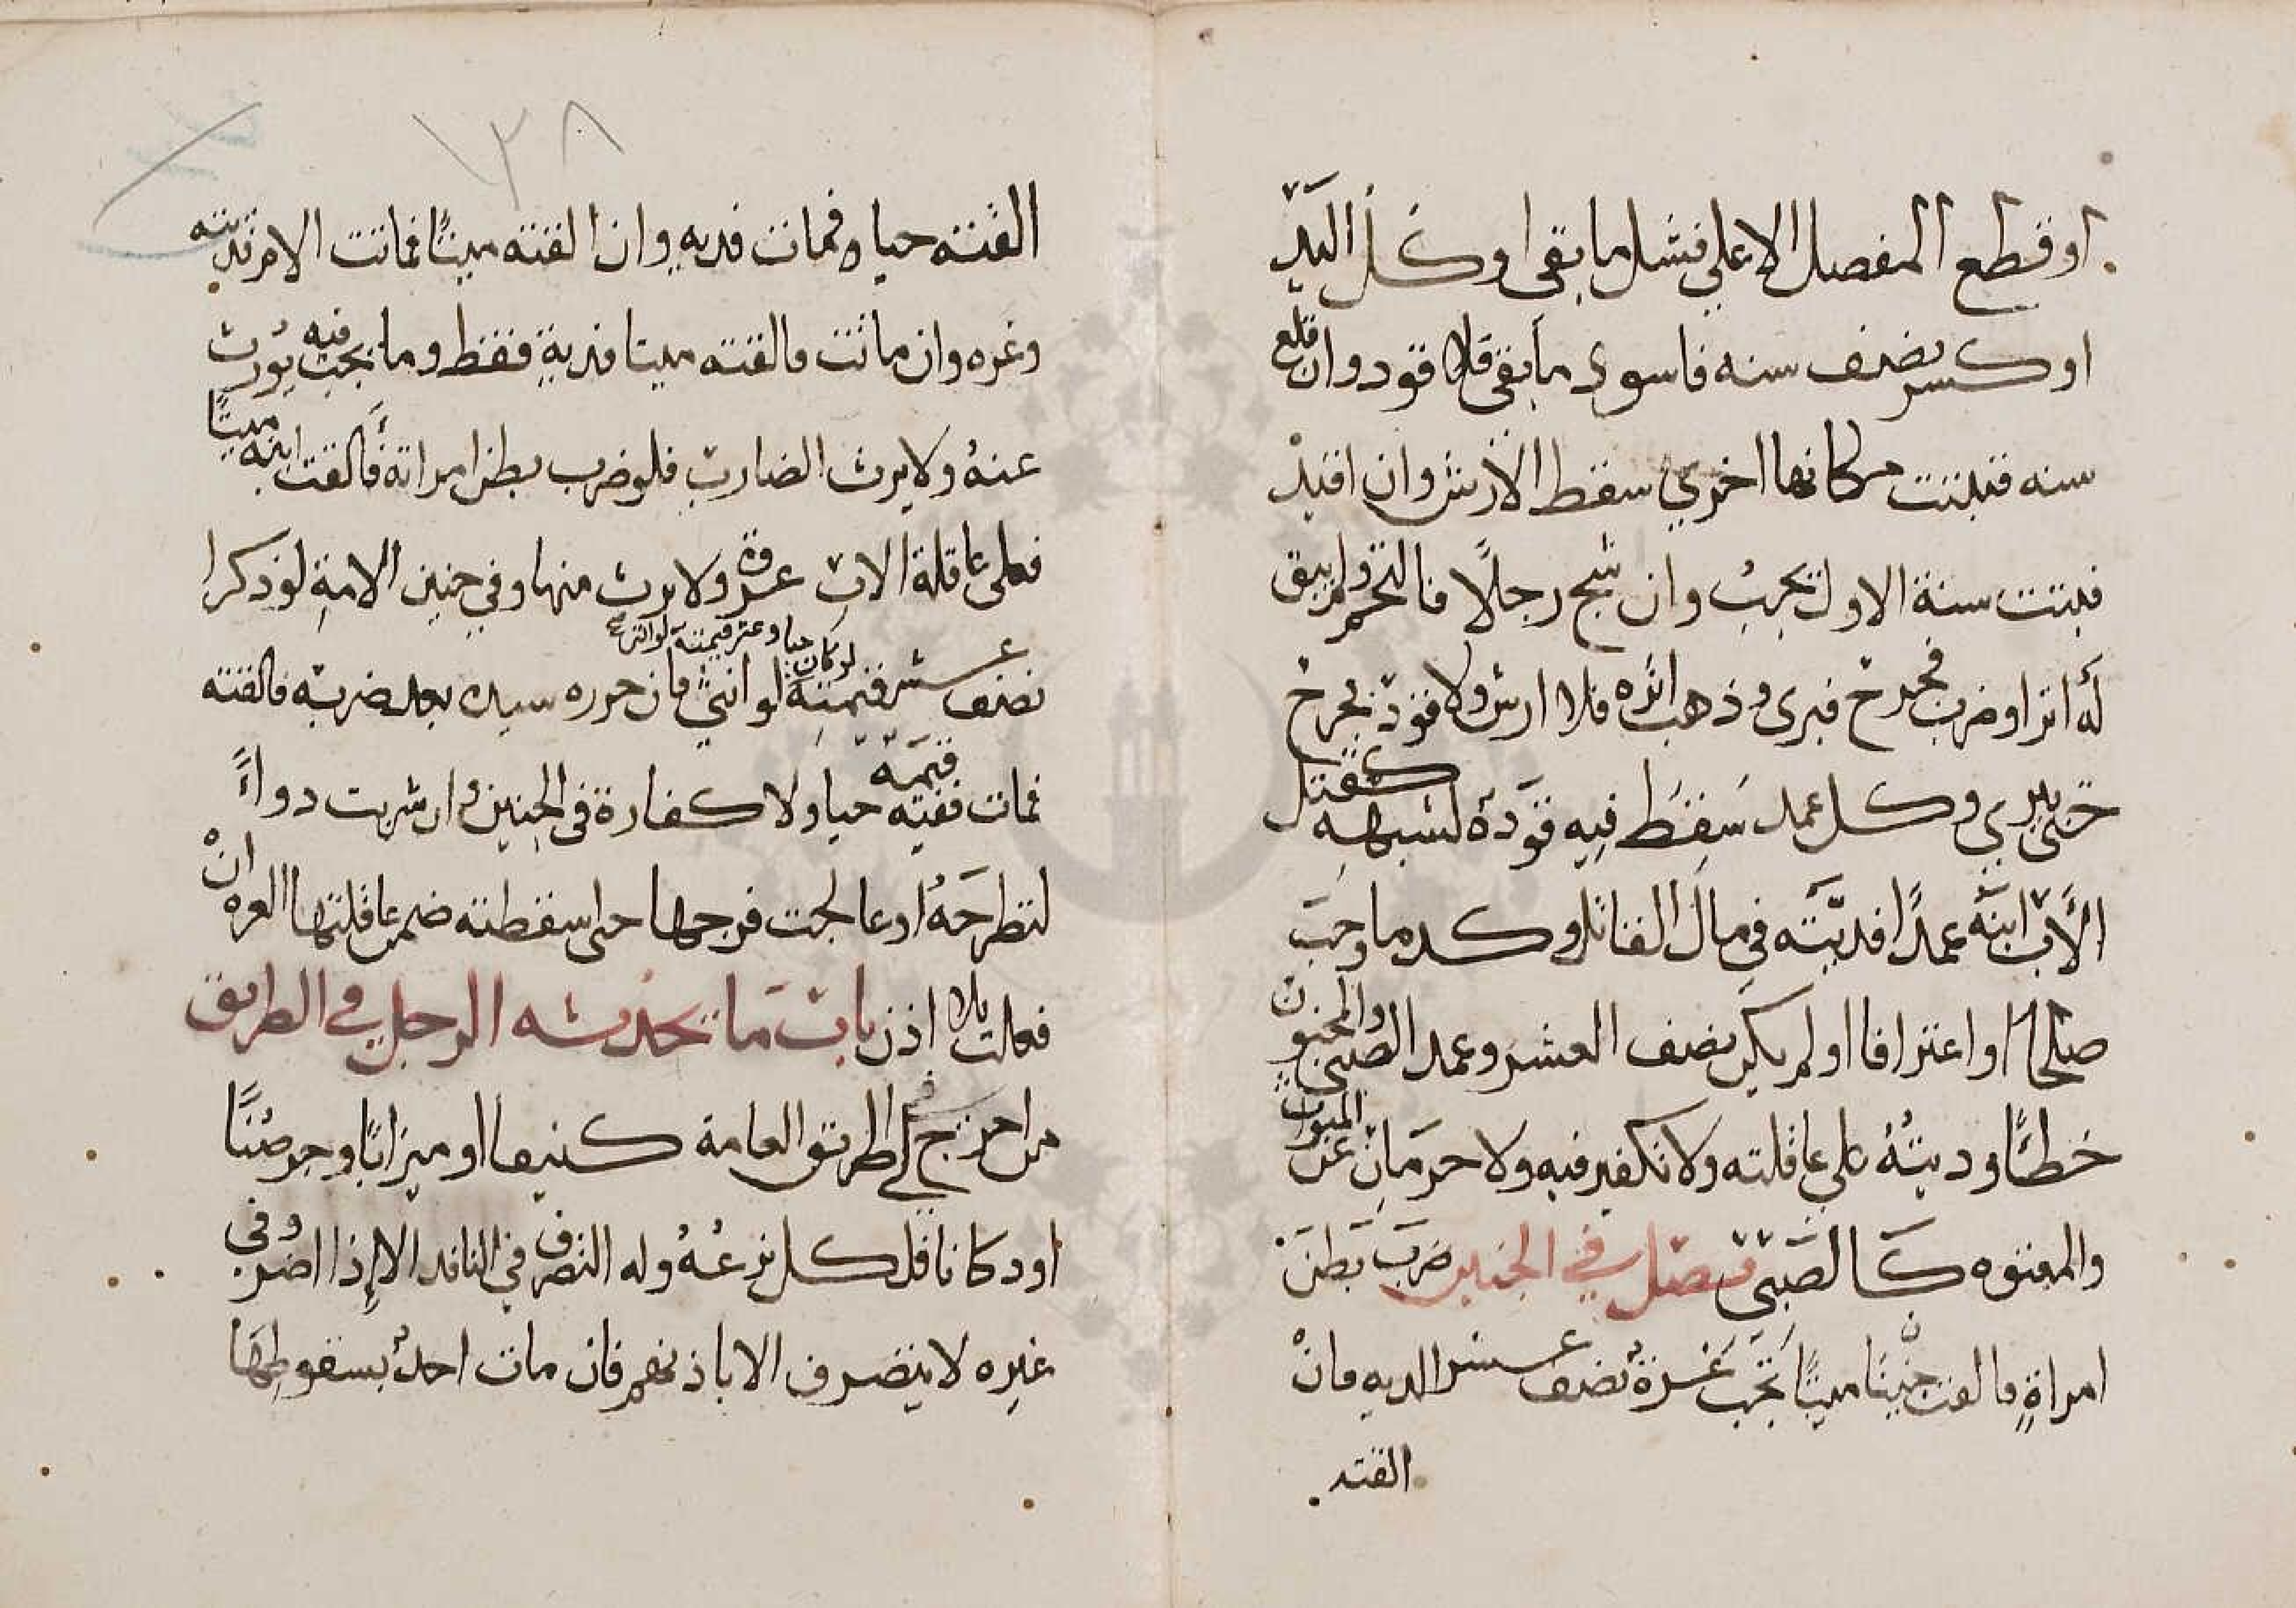 او قطع المفصل الاعلي فشل ما بقي او كل اليد
او كسر نصف سنه فاسود ما بقي فلا قود وان قلع
سنه فنبتت مكانها اخري سقط الارش وان اقيد
فنبتت سنة الاول تجب وان شج رجلا فالتحم ولم يبق
له اثر او ضرب فجرح فبرى وذهب اثره فلا ارش ولا قود بجرح
حتى يبري وكل عمد سقط فيه قوده لشبهه كقتل
الاب ابنه عمدا فديته في مال القاتل وكد ما وجب
صلحا او اعترافا او لم يكن نصف العشر وعمد الصبي والمجنون
خطئا وديته على عاقلته ولا تكفير فيه ولا حرمان عن الميراث
والمعتوه كالصبي فصل في الجنين ضرب بطن
امراة فالقت جنينا ميتا تجب غرة نصف عشر الديه فان
القته
١٣٨
القته حيا فمات فديه وان القته ميتا فماتت الام فديته
وغره وان ماتت فالقته ميتا فدية فقط وما يجب فيه يورث
عنه ولا يرث الضارب فلو ضرب بطن امراته فالقت ابنه ميتا
فعلى عاقلة الاب غرة ولا يرث منها وفي جنين الامة لو ذكرا
نصف عشر قيمته لو كان حيا وعشر قيمته لو انثى فان حرره سيده بعد ضربه فالقته
فمات ففيه قيمته حيا ولا كفارة في الجنين وان شربت دواء
لتطرحه او عالجت فرجها حتى اسقطته ضمن عاقلتها الغره ان
فعلت بلا اذن باب ما يحدثه الرجل في الطريق
من اخرج الى الطريق العامة كنيفا او ميزابا او جرصنا
او دكانا فلكل نزعه وله التصرف في النافذ الا اذا اضر وفي
غيره لا يتصرف الا باذنهم فان مات احد بسقوطها